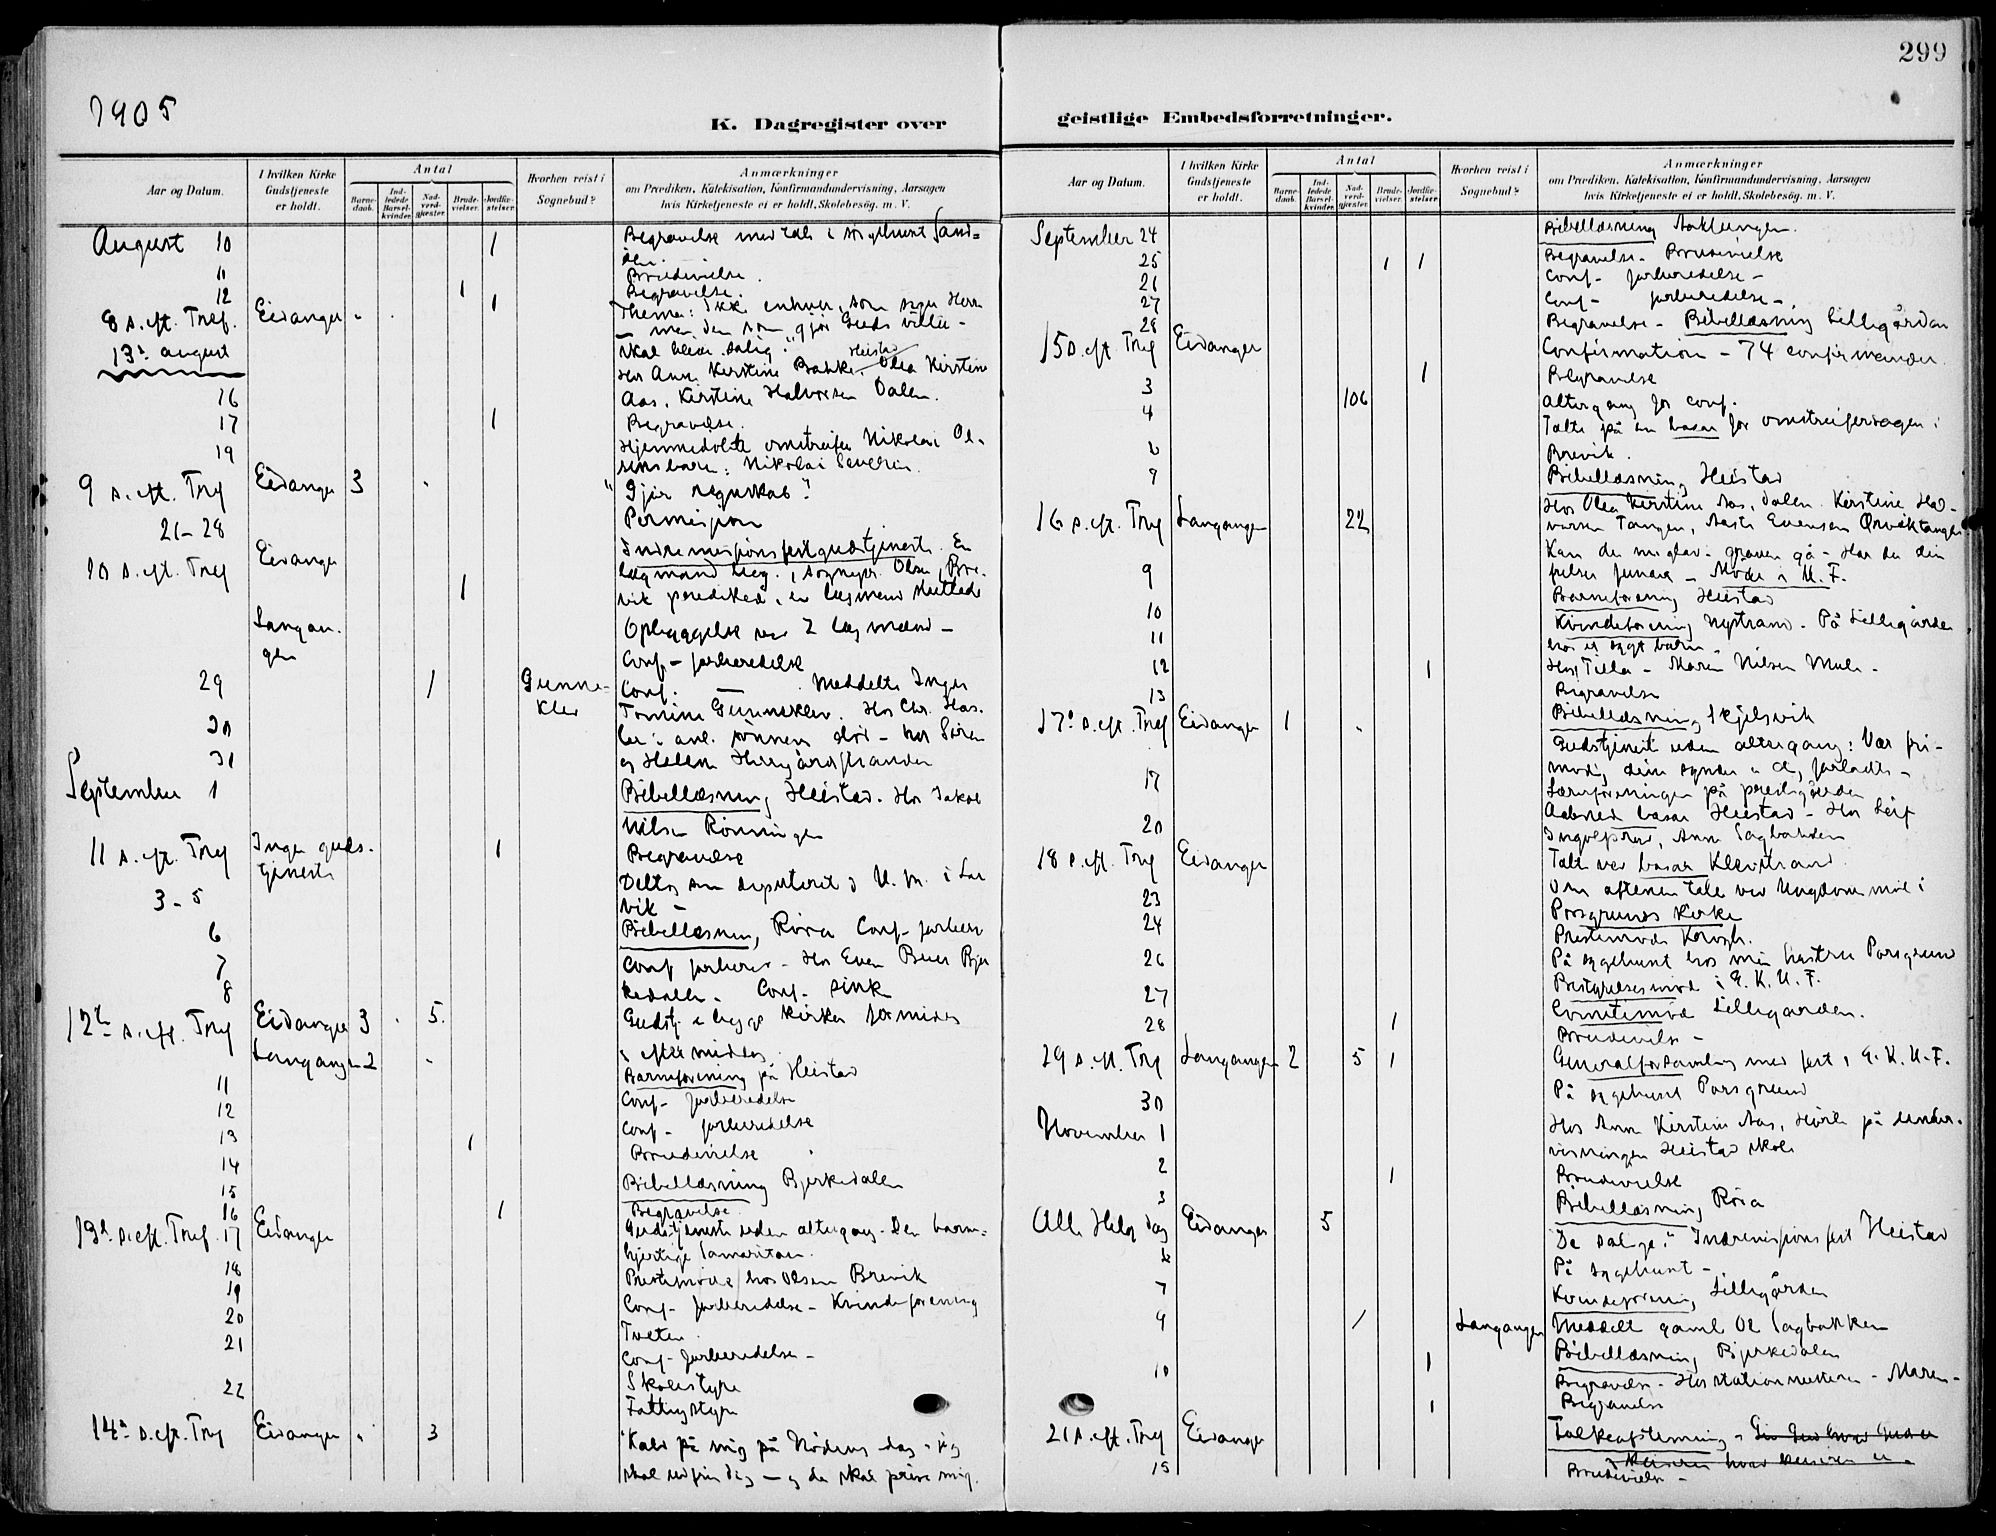 299
1905
K. Dagregister over
geistlige Embedsforretninger.
Aar og Datum.
I hvilken Kirke Gudstjeneste er holdt.
Antal
Barne-daab.
Ind-ledede Barsel-kvinder.
Nad-verd-gjæster.
Brude-vielser.
Jordfæ-stelser.
Hvorhen reist i Sognebud?
Anmærkninger
om Prædiken, Katekisation, Konfirmandundervisning, Aarsagen
hvis Kirketjeneste ei er holdt, Skolebesøg. m. V.
August 10 1 Begravelse med tale i
11 1 Brudevielse.
12 1 Begravelse.
8 s. eft. Tref. Eidanger Thema: Ikke enhver, som siger Herre
13de august – men den som gjør Guds villie –
skal blive salig."
Hos Anne Kirstine Bakke Heistad Olea Kirstine
16 Aas. Kirstine Halvorsen Dalen.
17 1 Begravelse.
19 Hjemmedøbte omstreifer Nikolai Ol-
sens barn: Nikolai Severin.
9 s. eft. Tref Eidanger 3 "Gjør regnskab."
21-28 Permisjon
10 s. eft. Tref Eidanger 1 Indremissionsfestgudstjeneste. En
lægmand , sognepr. Olsen, Bre-
vik prediked, en lægmand sluttede
Langan-
gen
Opbyggelse ved 2 lægmænd –
Conf – forberedelse
29 1 Gunne-
klev
Conf. – Meddelte Inger
Tomine Gunneklev. Hos Chr. Has-
30 ler i anl. sønnens død – hos Søren
31 og Helene Herregårdstranden
September 1 Bibellæsning Heistad. Hos Jakob
Nilsen Rønningen
11 s. eft. Tref Ingen guds-
tjeneste
1 Begravelse
3-5 Deltog som deputeret i U. M. i Lar
vik –
6 Bibellæsning, Røra Conf – forbere
7 Conf forbered – Hos Even Buer Bjer
8 kedalen. Conf.
12te s. eft. Tref Eidanger 3 5. Gudstj i begge kirker formiddag
Langangen 2 & eftermiddag.
11 Barneforening på Heistad
12 Conf – forberedelse
13 1 Conf – forberedelse
14 Brudevielse
15 Bibellæsning Bjerkedalen
16 1 Begravelse.
13de s. eft. Tref. 17 Eidanger Gudstjeneste uden altergang. Den barm-
hjertige Samaritan.
18 Prestemøde hos Olsen Brevik
19 Conf – forberedelse – Kvindeforening
20 Tveten.
21 Conf – forberedelse –
22 Skolestyre
Fattigstyre
14de s. eft. Tref Eidanger 3 "Kald på mig på Nødens dag – jeg
skal udfri dig – og du skal prise mig.
Aar og Datum.
I hvilken Kirke Gudstjeneste er holdt.
Antal
Barne-daab.
Ind-ledede Barsel-kvinder.
Nad-verd-gjæster.
Brude-vielser.
Jordfæ-stelser.
Hvorhen reist i Sognebud?
Anmærkninger
om Prædiken, Katekisation, Konfirmandundervisning, Aarsagen
hvis Kirketjeneste ei er holdt, Skolebesög. m. V.
September 24 Bibellæsning
25 1 1 Begravelse – Brudevielse
26 Conf – forberedelse –
27 Conf – forberedelse –
28 Begravelse – Bibellæsning Lillegården
15 s. eft Tref Eidanger Confirmation – 74 confirmander.
1 Begravelse
3 106 Altergang for conf.
4 Talte på en basar for omstreifersagen i
Brevik.
7 Bibellæsning Heistad
Hos Olea Kirstine Aas, Dalen. Kirstine Hal-
16 s. eft. Tref Langangen 22 vorsen Tangen, Aaste Evensen Ørviktangen
9 – Møde i U. F.
10 Barneforening Heistad
11 Kvindeforening Nystrand. På Lillegården
hos et sygt barn.
12 1 Hos Tilla – Maren Nilsen Mule –
13 Begravelse
17de s. eft. Tref Eidanger 1 Bibellæsning Skjelsvik
Gudstjeneste uden altergang: Vær fri-
modig, dine synder er dig forladte –
17 på prestegården
Aabned basar Heistad – Hos Leif
20 Anne Sagbakken
18 s. eft. Tref Eidanger Talte ved basar Klevstrand.
Om aftenen tale ved Ungdomsmøde i
23 Porsgrunds kirke
24 Prestemøde
26 På sygehuset hos min hustru Porsgrund
27 Bestyrelsesmøde i E. K. U. F.
28 1 Comitemøde Lillegården.
Brudevielse –
19 s. eft. Tref Langangen 2 5 1 Generalforsamling med fest i E. K. U. F.
30 På sygehuset Porsgrund
November 1 Hos Anne Kirstine Aas, Hørte på under-
visningen Heistad skole
2 1 Brudevielse
3 Bibellæsning Røra
Alle Helg dag Eidanger 5 "De salige." Indremissionsfest Heistad
På sygehuset –
7 Kvindeforening Lillegården
9 1 Langangen Meddelt gamle Ol Sagbakken
1 Bibellæsning Bjerkedalen
10 Begravelse – Hos stationsmesteren – Maren –
1 Begravelse
21 s. eft. Tref Eidanger Folkeafstemning
15 Brudevielse –